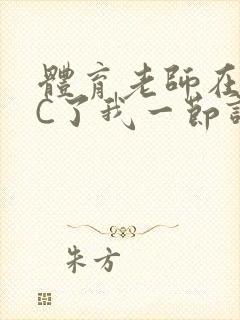 體育老師在
C了我一節
朱方